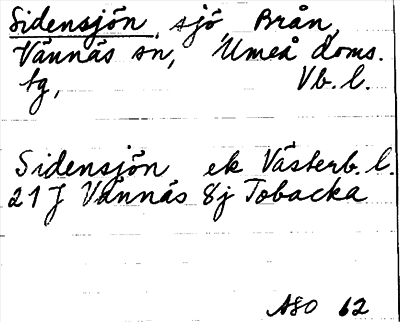 Sidensjön, sjö Brån,
Vännäs sn, Umeå doms.
tg, Vb. l.
Sidensjön ek Västerb. l.
21 J Vännäs 8j Tobacka
ASO 62